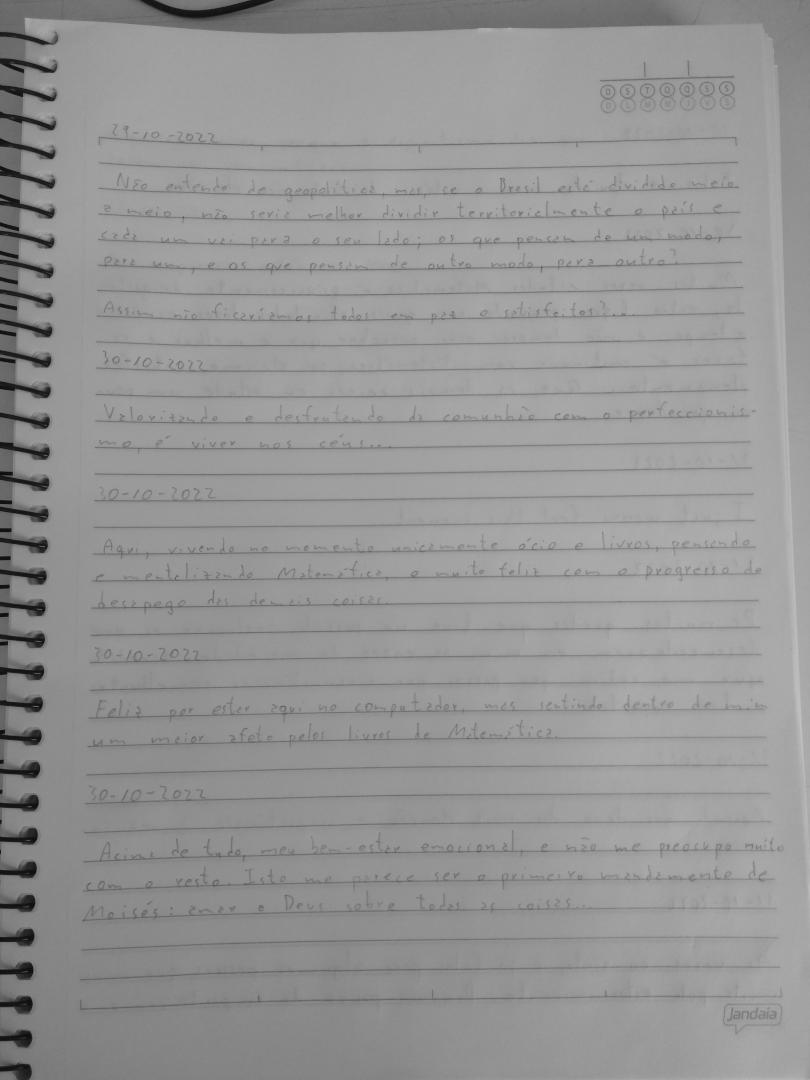 D S T Q Q S S
D L M M J V S
29-10-2022
Não entendo de geopolítica, mas, se o Brasil está dividido meio
a meio, não seria melhor dividir territorialmente o país e
cada um vai para o seu lado; os que pensam de um modo,
para um, e os que pensam de outro modo, para outro?
Assim não ficaríamos todos em paz e satisfeitos?...
30-10-2022
Valorizando e desfrutando da comunhão com o perfeccionis-
mo, é viver nos céus...
30-10-2022
Aqui, vivendo no momento unicamente ócio e livros, pensando
e mentalizando Matemática, e muito feliz com o progresso do
desapego das demais coisas.
30-10-2022
Feliz por estar aqui no computador, mas sentindo dentro de mim
um maior afeto pelos livros de Matemática.
30-10-2022
Acima de tudo, meu bem-estar emocional, e não me preocupo muito
com o resto. Isto me parece ser o primeiro mandamento de
Moisés: amar a Deus sobre todas as coisas...
Jandaia